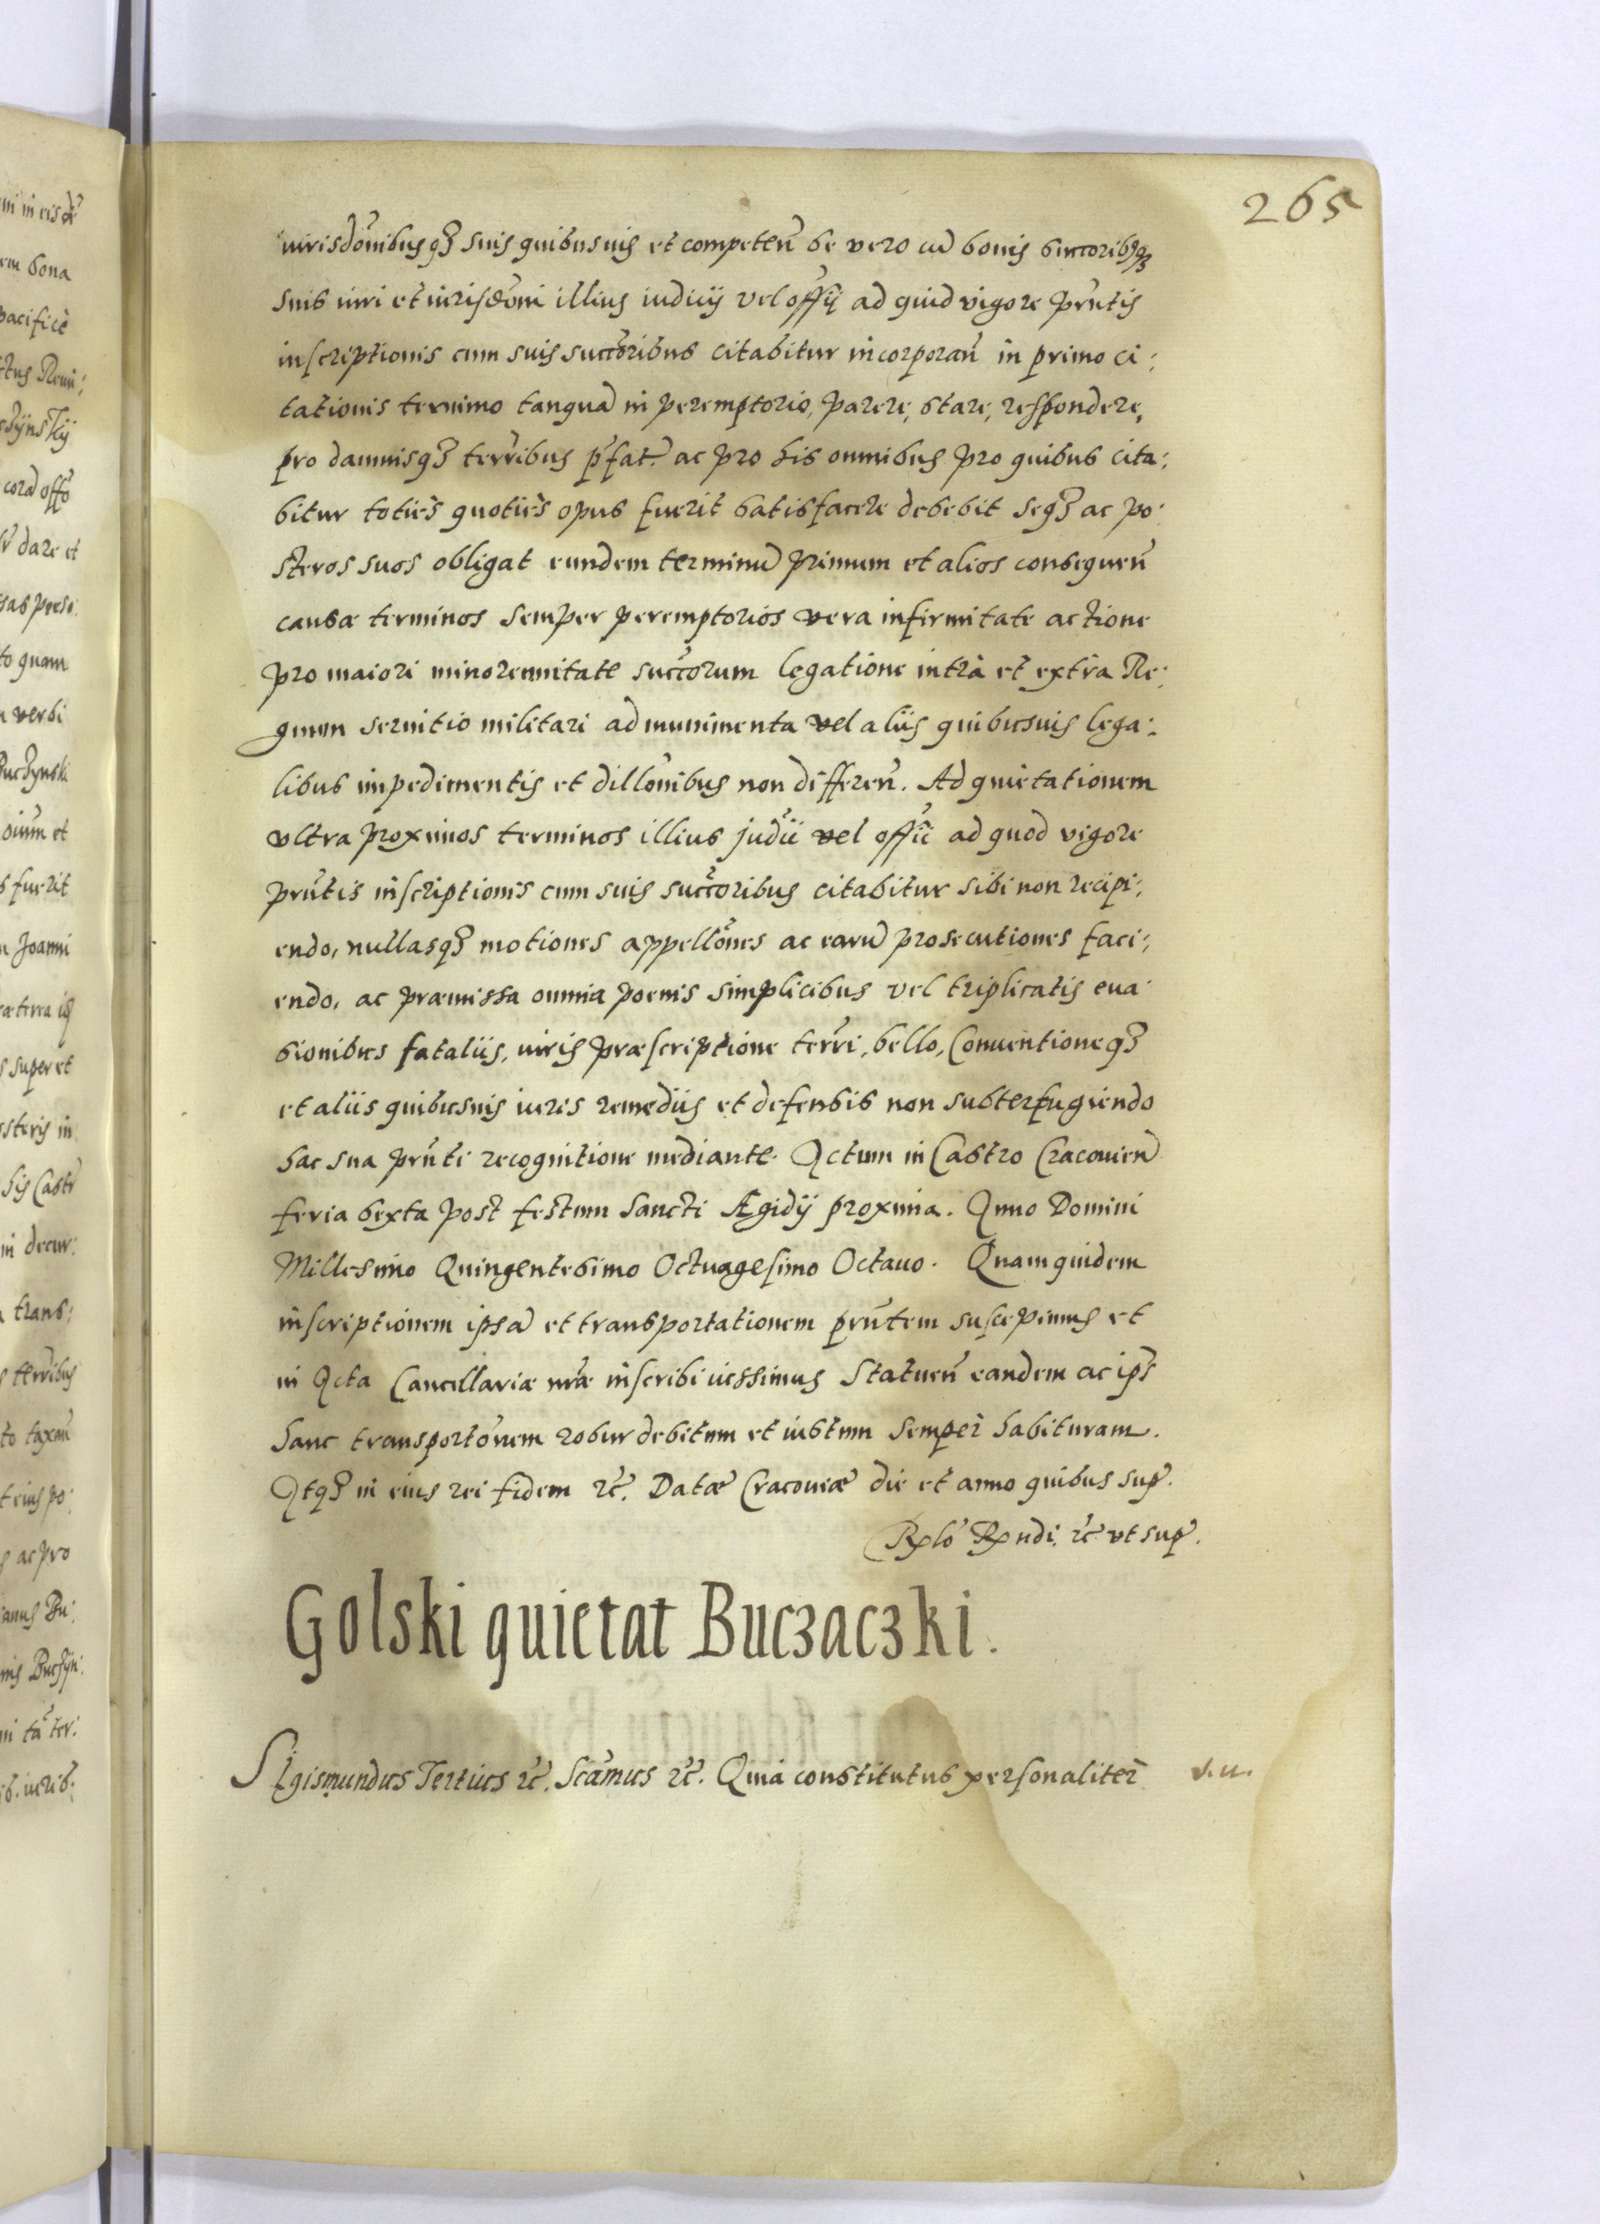 265
iurisdōnibusq₃ suis quibusuis et competeñ se vero cū bonis succoribq₃
suis iuri et iurisdōni illius iudicij vel offij ad quid vigore pr̃ntis
inscriptionis cum suis succoribus citabitur incorporañ in primo ci:
tationis termino tanquā in peremptorio, parere, stare, respondere,
pro damnisq₃ terr̃ibus pfat. ac pro his omnibus pro quibus cita:
bitur toties quoties opus fuerit satisfacere debebit seq₃ ac po:
steros suos obligat eundem terminū primum et alios consequeñ
causæ terminos semper peremptorios vera infirmitate actione
pro maiori minorennitate succorum legatione intra et extra Re:
gnum seruitio militari ad munimenta vel aliis quibusuis lega:
libus impedimentis et dillōnibus non differeñ. Ad quietationem
vltra proximos terminos illius judii vel offii ad quod vigore
pr̃ntis inscriptionis cum suis succoribus citabitur sibi non recipi:
endo, nullasq₃ motiones appellōnes ac earū prosecutiones faci:
endo, ac præmissa omnia poenis simplicibus vel triplicatis eua:
sionibus fataliis, iuris præscriptione terri, bello, Conuentioneq₃
et aliis quibusuis iuris remediis et defensis non subterfugiendo
hac sua pr̃nti recognitione mediante. Actum in Castro Cracouieñ
feria sexta post festum Sancti Ægidij proxima. Anno Domini
Millesimo Quingentesimo Octuagesimo Octauo. Quam quidem
inscriptionem ipsā et transportationem pr̃ntem suscepimus et
in Acta Cancellariæ nr̃æ inscribi iussimus Statueñ eandem ac ips
hanc transportōnem robur debitum et iustum semper habituram.
Atq₃ in eius rei fidem rc̃. Datæ Cracouiæ die et anno quibus sup.
Rlõ Rndi, rc̃ vt sup.
Golski quietat Buczaczki.
Sigismundus Tertius rc̃. Scãmus rc̃. Quia constitutus personaliter
v. u.